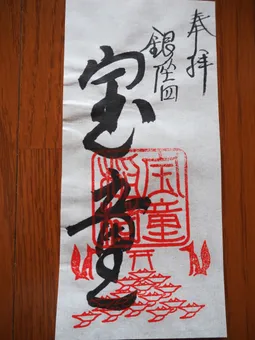 奉拝
銀座四
宝童